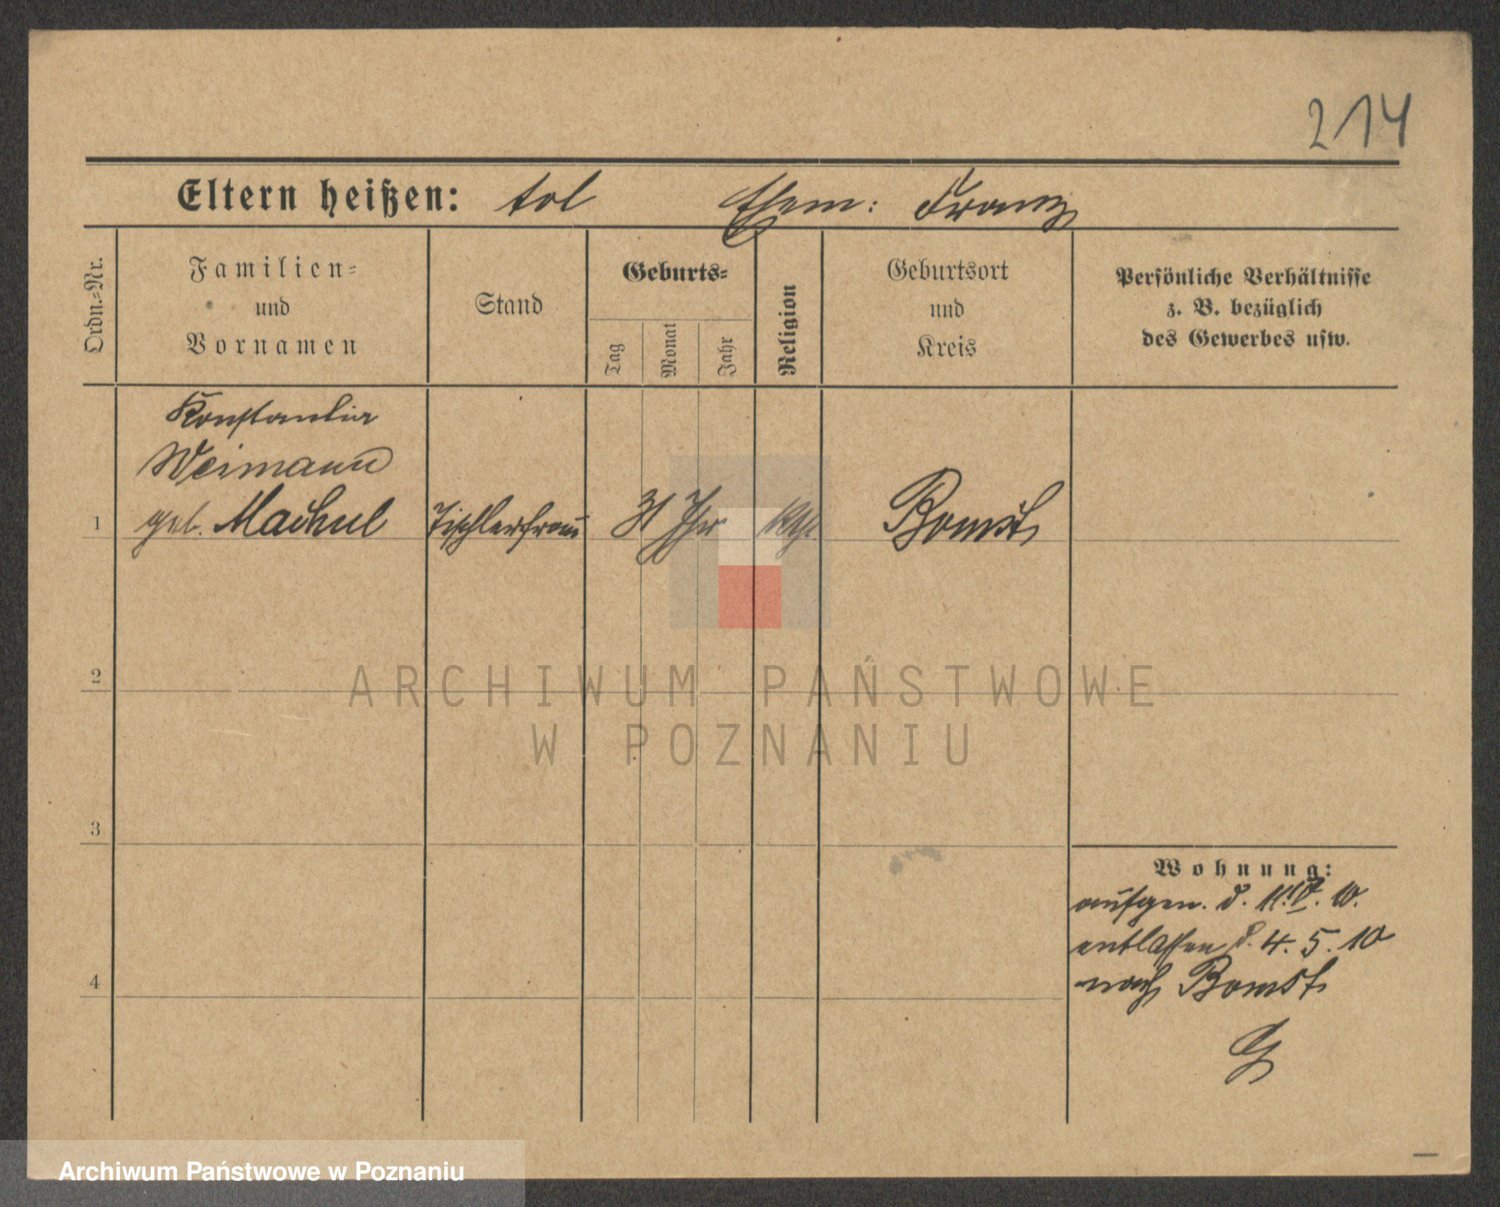 214
Eltern heißen: tot Ehem: Franz
Ordn.-Nr.
Familien-
und
Vornamen
Stand
Geburts-
Tag
Monat
Jahr
Religion
Geburtsort
und
Kreis
Persönliche Verhältnisse
z. B. bezüglich
des Gewerbes usw.
Konstantia
Weimann
1 geb. Machul Tischlerfrau 31 Jhr kth Bomst
2
3
4
Wohnung:
aufgen. d. IV. 10.
entlassen d. 4. 5. 10
nach Bomst
ARCHIWUM PAŃSTWOWE
W POZNANIU
Archiwum Państwowe w Poznaniu